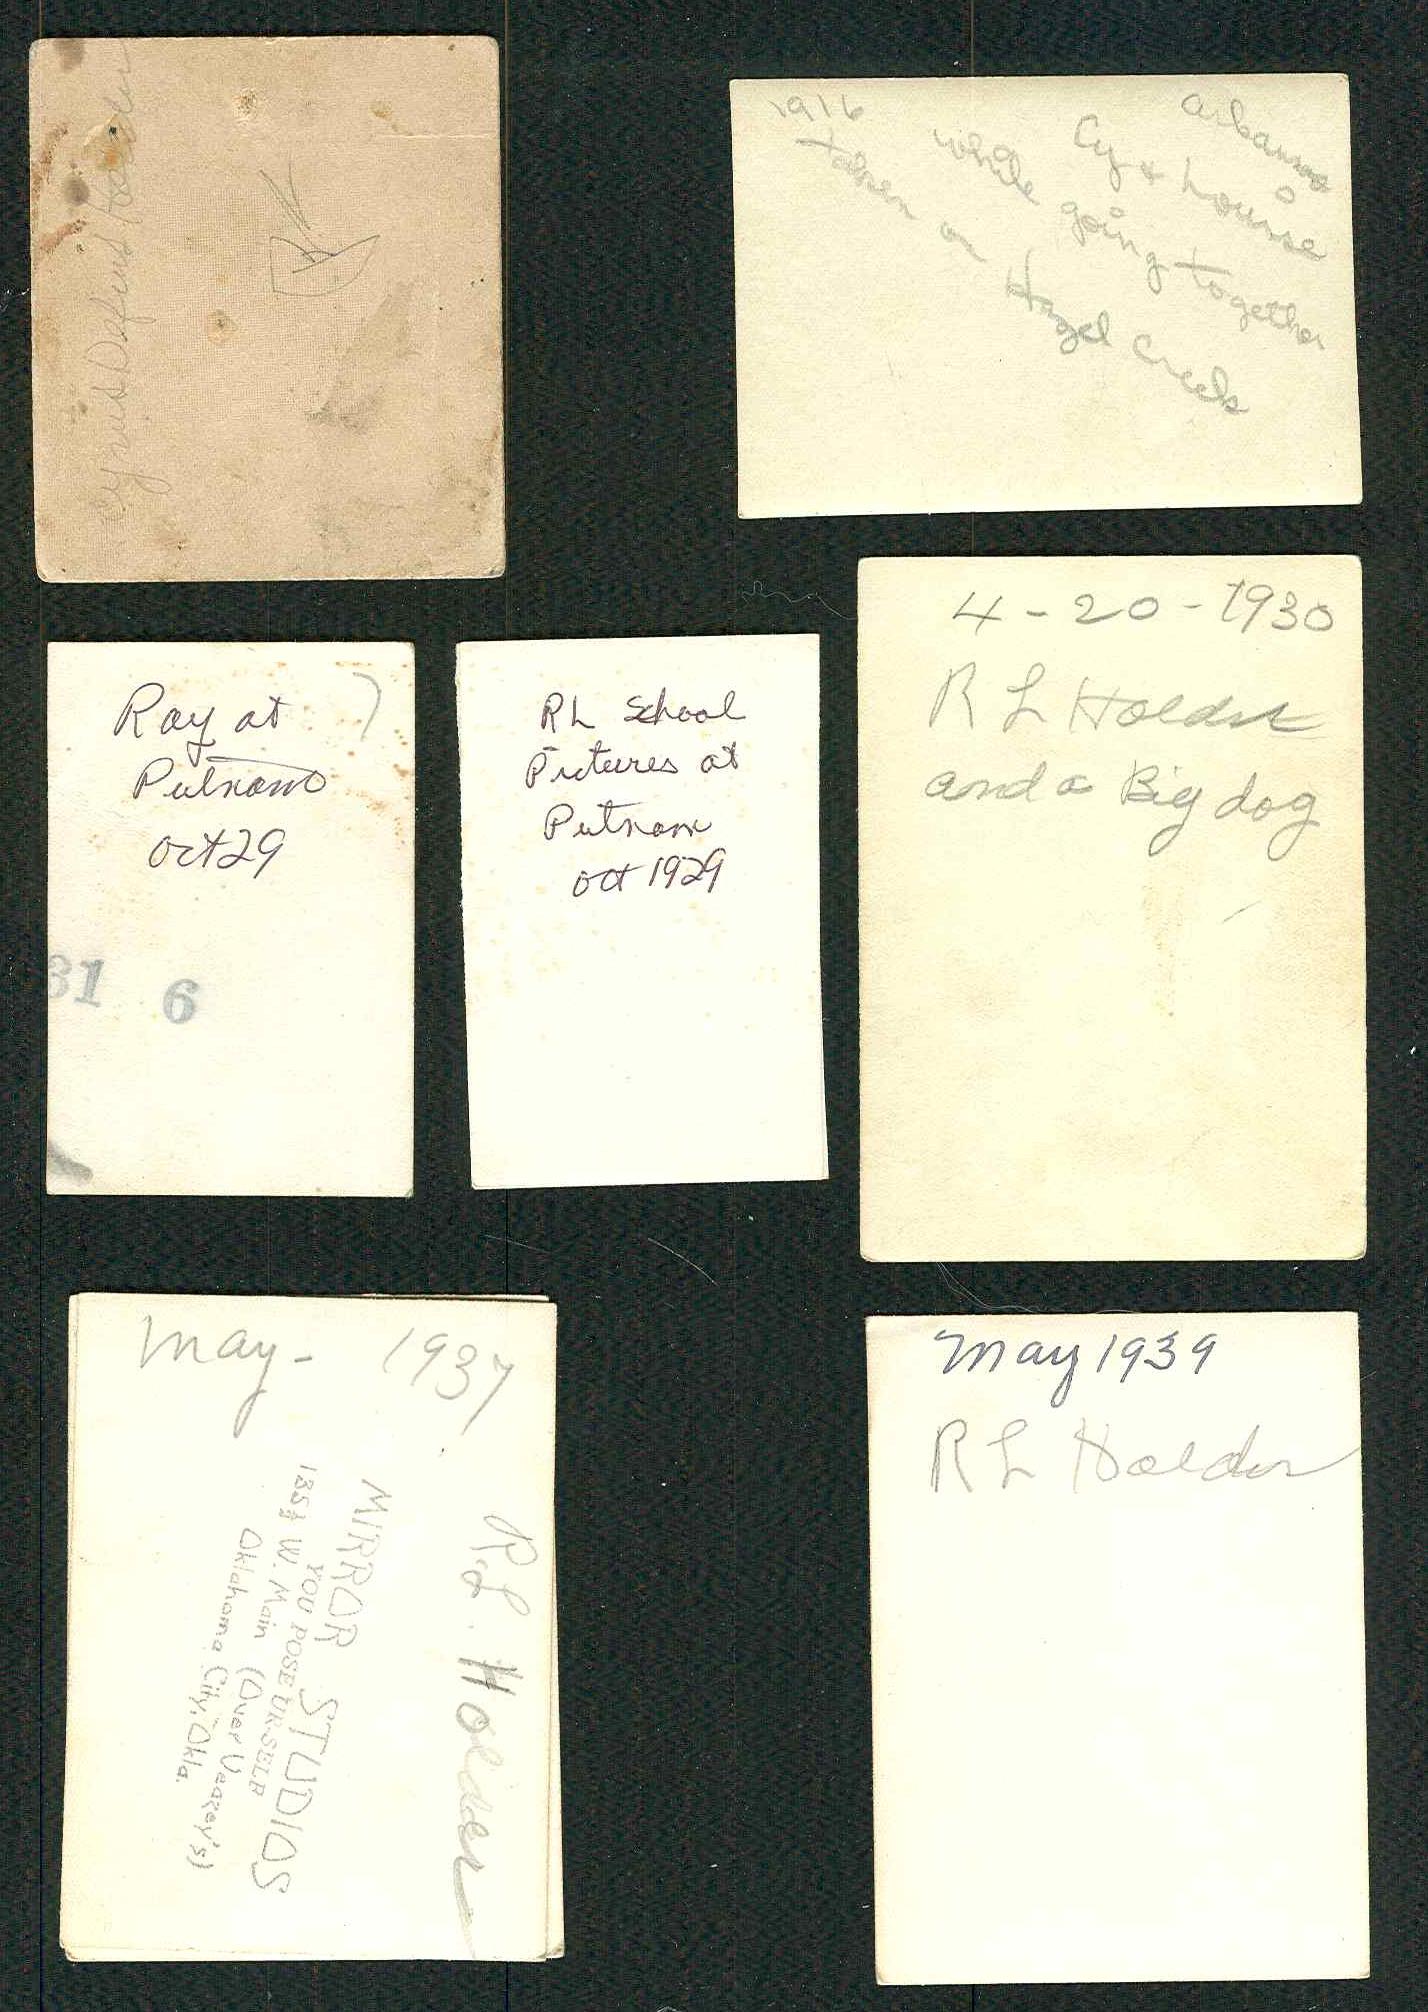 Cyrus Holder
1916
Arkansas
Cy & Louise
while going together
taken on Hazel Creek
Ray at
Putnam
Oct 29
31 6
RL School
Pictures at
Putnam
Oct 1929
4-20-1930
R L Holder
and a Big dog
May - 1937
R.L. Holder
MIRROR STUDIOS
YOU POSE UR-SELF
135½ W. Main (Over Veazey's)
Oklahoma City, Okla.
May 1939
R L Holder